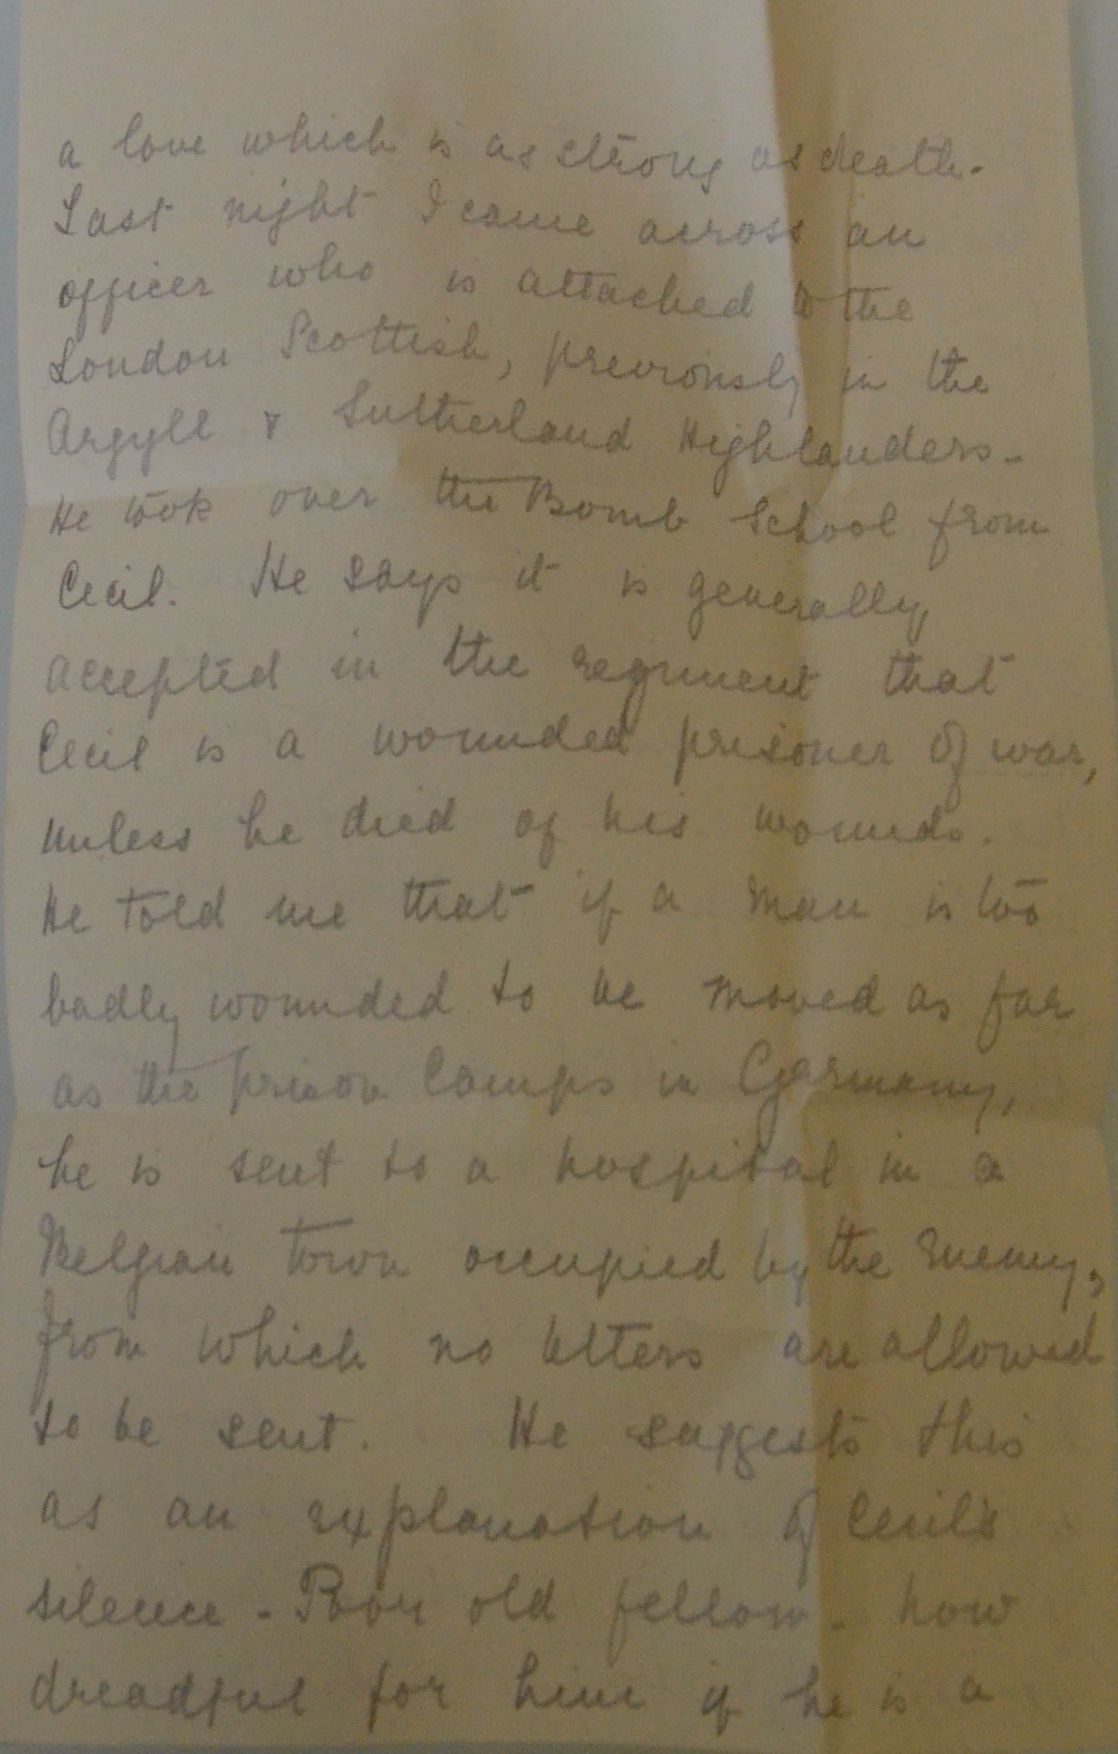 a love which is as strong as death.
Last night I came across an
officer who is attached to the
London Scottish, previously in the
Argyll & Sutherland Highlanders.
He took over the Bomb School from
Cecil. He says it is generally
accepted in the regiment that
Cecil is a wounded prisoner of war,
unless he died of his wounds.
He told me that if a man is too
badly wounded to be moved as far
as the prison camps in Germany,
he is sent to a hospital in a
Belgian town occupied by the enemy,
from which no letters are allowed
to be sent. He suggests this
as an explanation of Cecil's
silence - Poor old fellow - how
dreadful for him if he is a